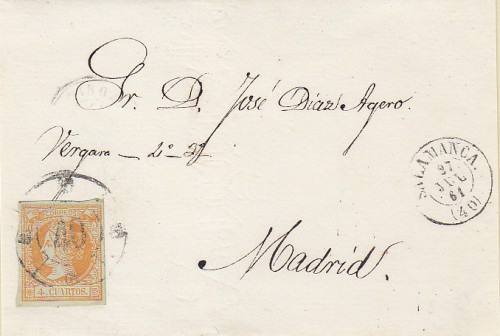 Sr. D. José Díaz Agero.
Vergara
Madrid.
SALAMANCA.
27
JUL
61
(40)
40
4 CUARTOS.